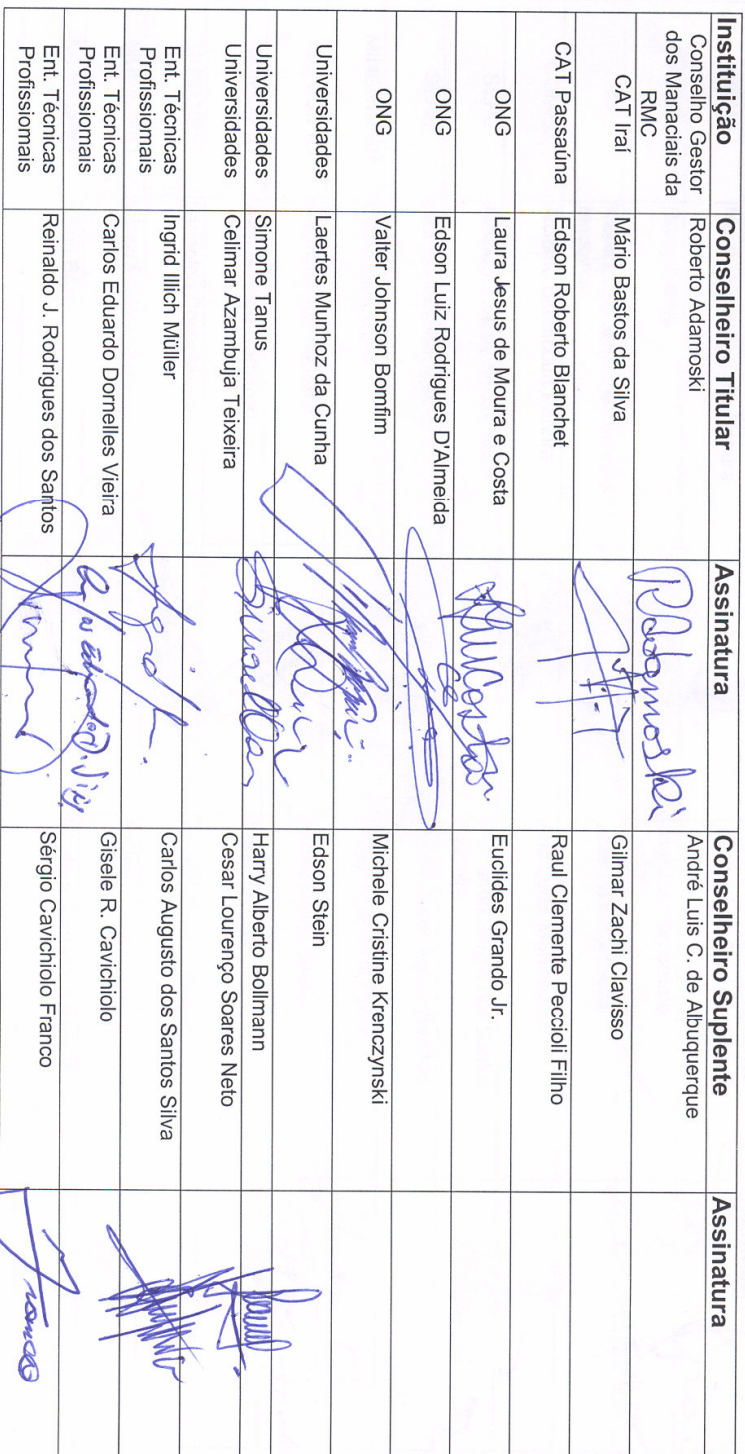 Instituição Conselheiro Titular Assinatura Conselheiro Suplente Assinatura
Conselho Gestor Roberto Adamoski RAdamoski André Luis C. de Albuquerque
dos Manaciais da
RMC
CAT Iraí Mário Bastos da Silva Gilmar Zachi Clavisso
CAT Passaúna Edson Roberto Blanchet Raul Clemente Peccioli Filho
ONG Laura Jesus de Moura e Costa Euclides Grando Jr.
ONG Edson Luiz Rodrigues D'Almeida
ONG Valter Johnson Bomfim Michele Cristine Krenczynski
Universidades Laertes Munhoz da Cunha Edson Stein
Universidades Simone Tanus Harry Alberto Bollmann
Universidades Celimar Azambuja Teixeira Cesar Lourenço Soares Neto
Ent. Técnicas Ingrid Illich Müller Carlos Augusto dos Santos Silva
Profissionais
Ent. Técnicas Carlos Eduardo Dornelles Vieira Gisele R. Cavichiolo
Profissionais
Ent. Técnicas Reinaldo J. Rodrigues dos Santos Sérgio Cavichiolo Franco Franco
Profissionais